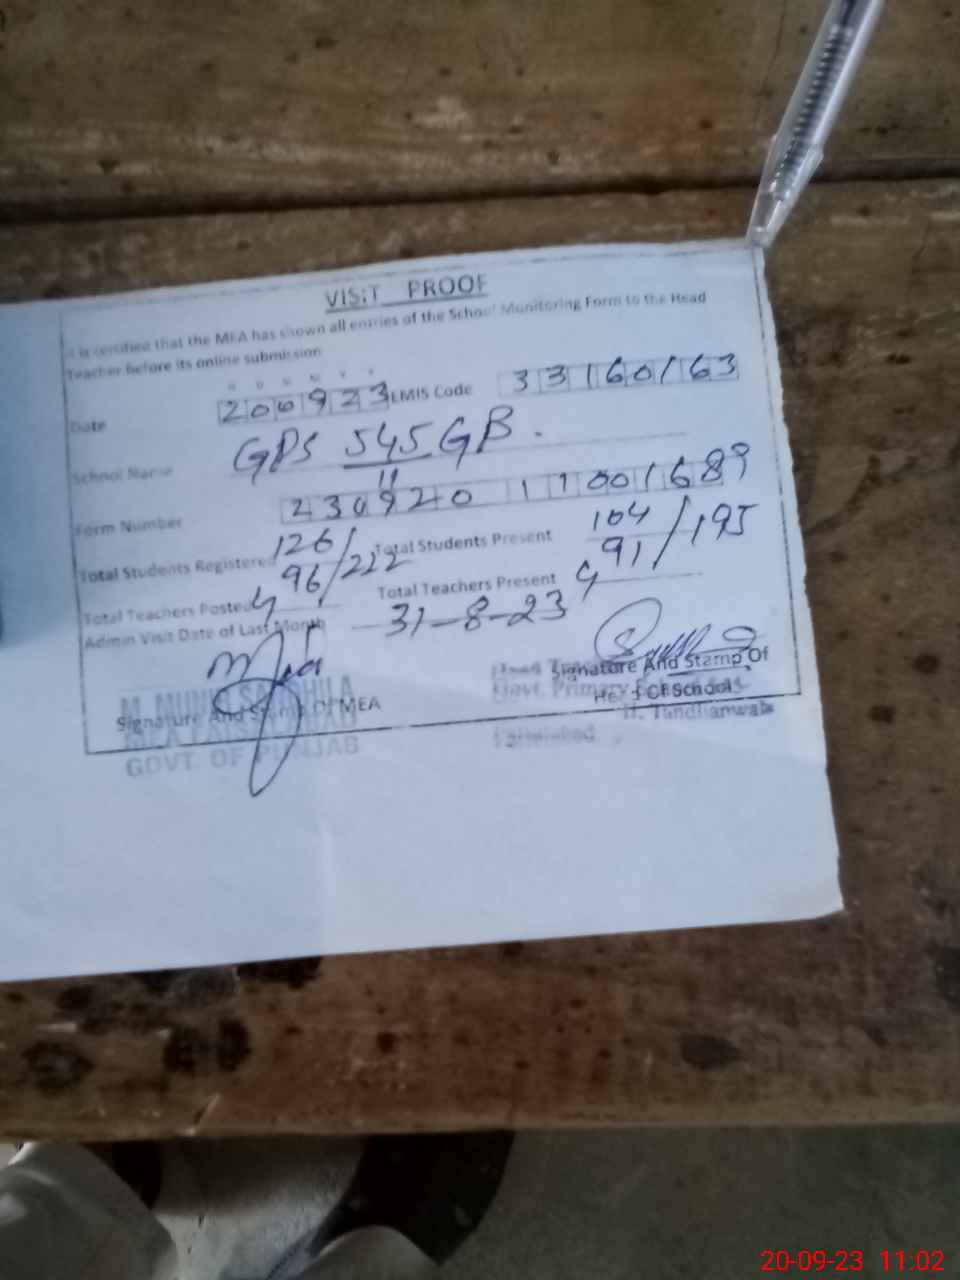 VISIT PROOF
It is certified that the MEA has shown all entries of the School Monitoring Form to the Head
Teacher before its online submission
D D M M Y Y
Date 200923 EMIS Code 33160163
School Name GPS 545 GB.
Form Number 230920 11001689
Total Students Registered 126/96/222 Total Students Present 104/91/195
Total Teachers Posted 4 Total Teachers Present 4
Admin Visit Date of Last Month 31-8-23
Signature And Stamp Of MEA
Signature And Stamp Of
Head Of School
M. MUNIR
MEA FAISALABAD
GOVT. OF PUNJAB
Head
Govt. Primary School
Tandlianwala
20-09-23 11:02